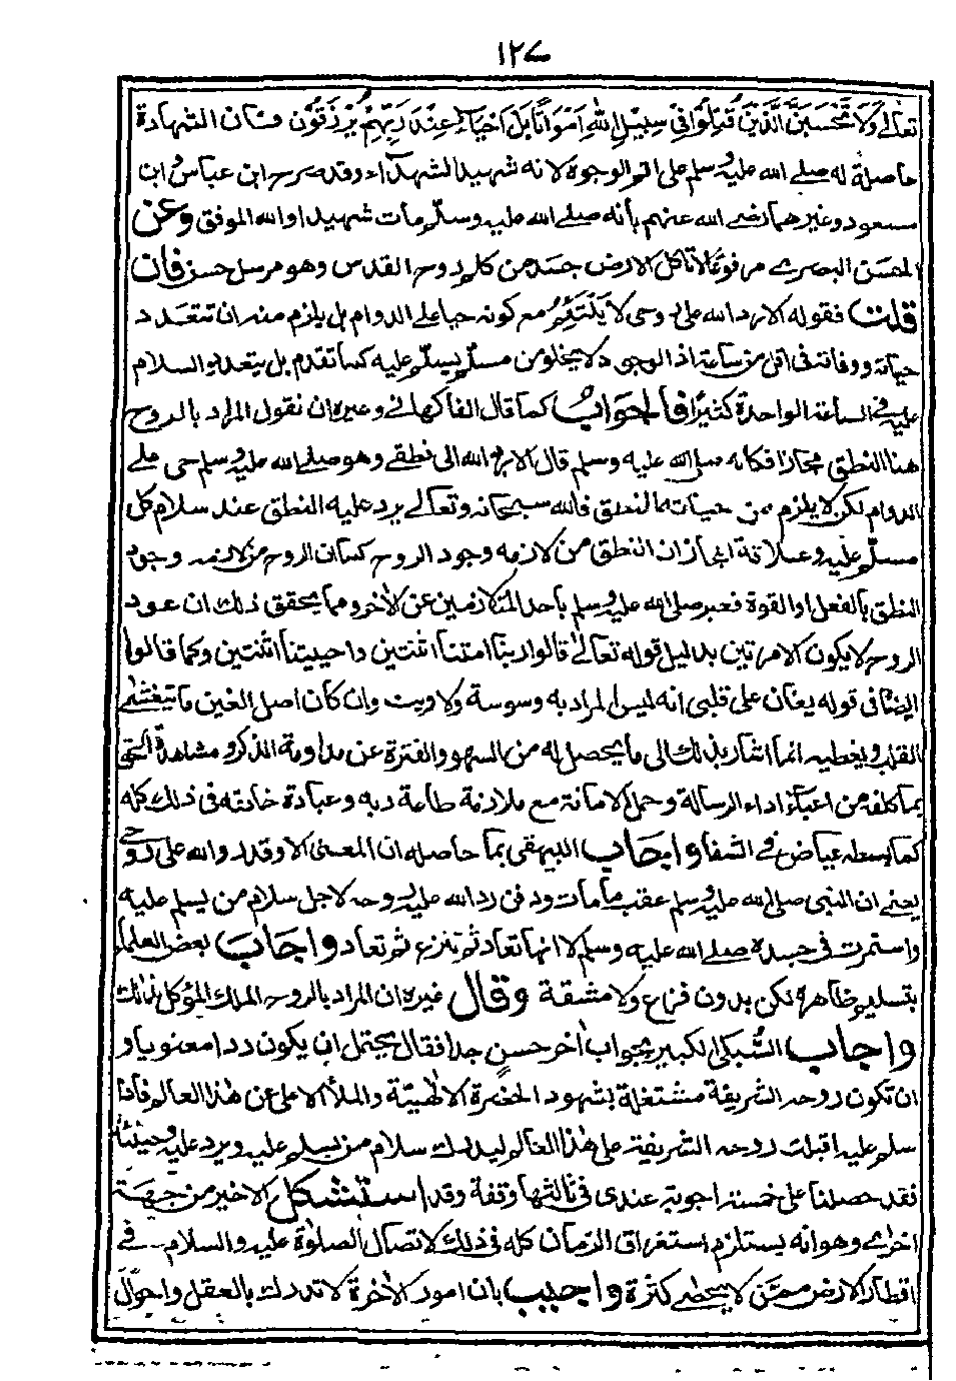 ١٢٧
تعالى ولا تحسبن الذين قتلوا في سبيل الله امواتا بل احياء عند ربهم يرزقون فشان الشهادة
حاصلة له صلى الله عليه وسلم على اتم الوجوه لانه شهيد الشهداء وقد صرح ابن عباس وابن
مسعود وغيرهما رضي الله عنهم بأنه صلى الله عليه وسلم مات شهيدا والله الموفق وعن
الحسن البصري مرفوعا لا تاكل الارض جسد من كلم روح القدس وهو مرسل حسن فان
قلت فقوله الا رد الله على روحي لا يلتئم مع كونه حيا على الدوام بل يلزم منه ان تتعدد
حياته ووفاته في اقل من ساعة اذ الوجود لا يخلو من مسلم يسلم عليه كما تقدم بل يتعدد السلام
عليه في الساعة الواحدة كثيرا فالجواب كما قال الفاكهاني وغيره ان نقول المراد بالروح
هنا النطق مجازا فكانه صلى الله عليه وسلم قال الا رد الله الى نطقي وهو صلى الله عليه وسلم حي على
الدوام لكن لا يلزم من حياته النطق فالله سبحانه وتعالى يرد عليه النطق عند سلام كل
مسلم عليه وعلاقة المجاز ان النطق من لازمه وجود الروح كما ان الروح من لازمه وجود
النطق بالفعل او القوة فعبر صلى الله عليه وسلم باحد المتلازمين عن الاخر ومما يحقق ذلك ان عود
الروح لا يكون الا مرتين بدليل قوله تعالى قالوا ربنا امتنا اثنتين واحييتنا اثنتين وكما قالوا
ايضا في قوله يغان على قلبي انه ليس المراد به وسوسة ولا ريب وان كان اصل الغين ما يتغشى
القلب ويغطيه انما اشار بذلك الى ما يحصل له من السهو والفترة عن مداومة الذكر ومشاهدة الحق
بما كلفه من اعباء اداء الرسالة وحمل الامانة مع ملازمة طاعة ربه وعبادة خالقه في ذلك كله
كما بسطه عياض في الشفا واجاب البيهقي بما حاصله ان المعنى الا وقد رد الله على روحي
يعني ان النبي صلى الله عليه وسلم عقب ما مات ودفن رد الله عليه روحه لاجل سلام من يسلم عليه
واستمرت في جسده صلى الله عليه وسلم لا انها تعاد ثم تنزع ثم تعاد واجاب بعض العلماء
بتسليم ظاهره لكن بدون فزع ولا مشقة وقال غيره ان المراد بالروح الملك الموكل بذلك
واجاب السُّبكي الكبير بجواب آخر حسن جدا فقال يحتمل ان يكون ردا معنويا و
ان تكون روحه الشريفة مشتغلة بشهود الحضرة الالهية والملأ الاعلى عن هذا العالم فاذا
سلم عليه اقبلت روحه الشريفة على هذا العالم ليدرك سلام من يسلم عليه ويرد عليه وحينئذ
فقد حصلنا على خمسة اجوبة وعندي في ثالثها وقفة وقد استشكل الاخير من جهة
اخرى وهو انه يستلزم استغراق الزمان كله في ذلك لاتصال الصلوة عليه والسلام في
اقطار الارض ممن لا يحصى كثرة واجيب بان امور الآخرة لا تدرك بالعقل واحوال